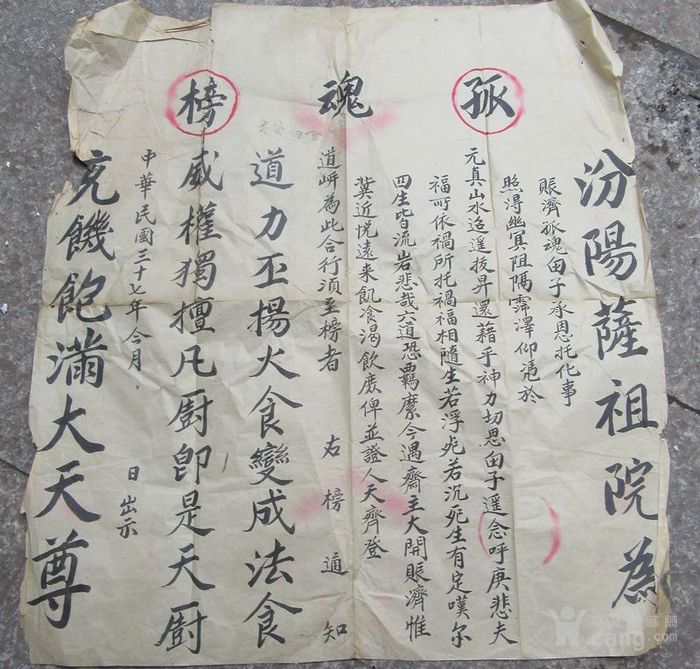 孤魂榜
汾陽薩祖院為
賬濟孤魂甶子承恩托化事
照得幽冥阻隔霈澤仰凴於
元真山水造遥拔昇還藉乎神力切思甶子遥念呼庚悲夫
福所依禍所托禍福相隨生若浮死若沉死生有定嘆尔
四生皆流岩悲哉六道恐羈縻今遇齋主大開賬濟惟
冀近悦遠来飢食渴飲庻俾並證人天齊登
道岍為此合行須至榜者 右榜通知
道力丕揚火食變成法食
威權獨擅凡厨即是天厨
中華民國三十七年今月 日出示
充饑飽滿大天尊